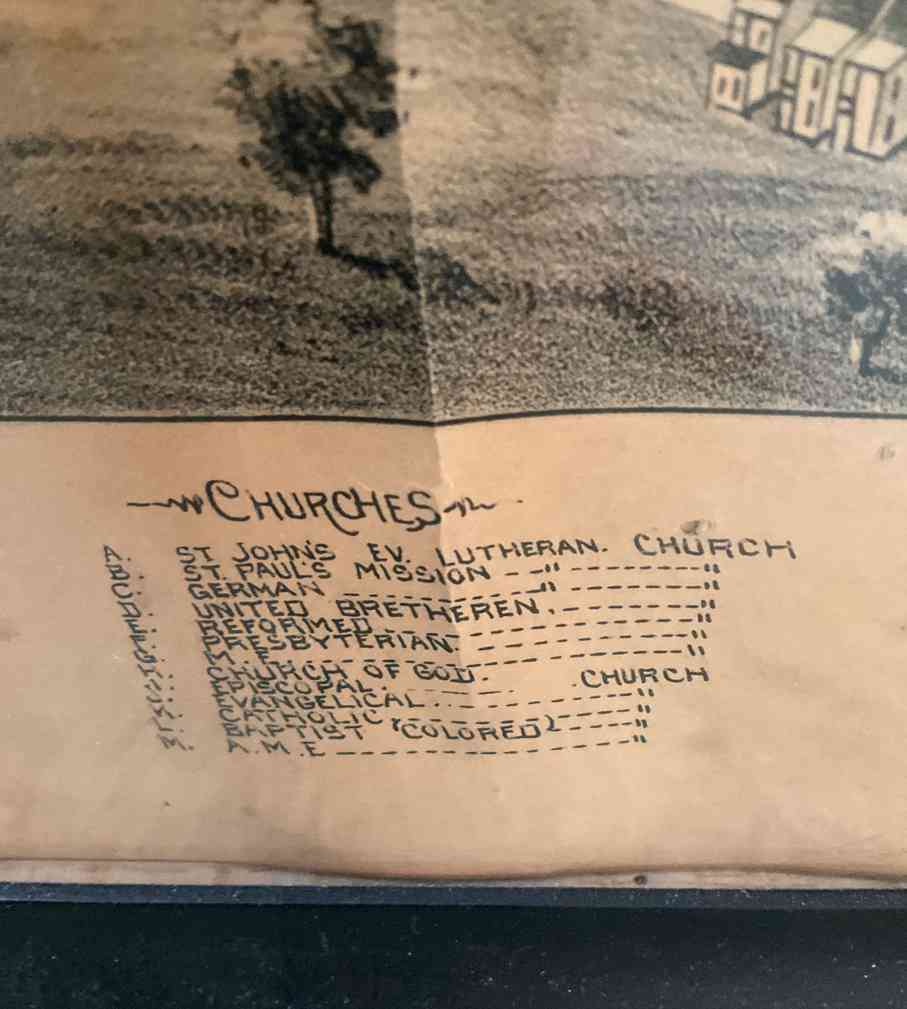 CHURCHES
A. ST JOHN'S EV. LUTHERAN. CHURCH
ST. PAUL'S MISSION -- " ------- "
GERMAN -------- " ------- "
UNITED BRETHEREN. ------- "
REFORMED. ------- "
PRESBYTERIAN. ------- "
M.E. ------- "
CHURCH OF GOD.
EPISCOPAL. ------ CHURCH
EVANGELICAL. ------- "
CATHOLIC ------- "
BAPTIST (COLORED) ------- "
A.M.E ------- "